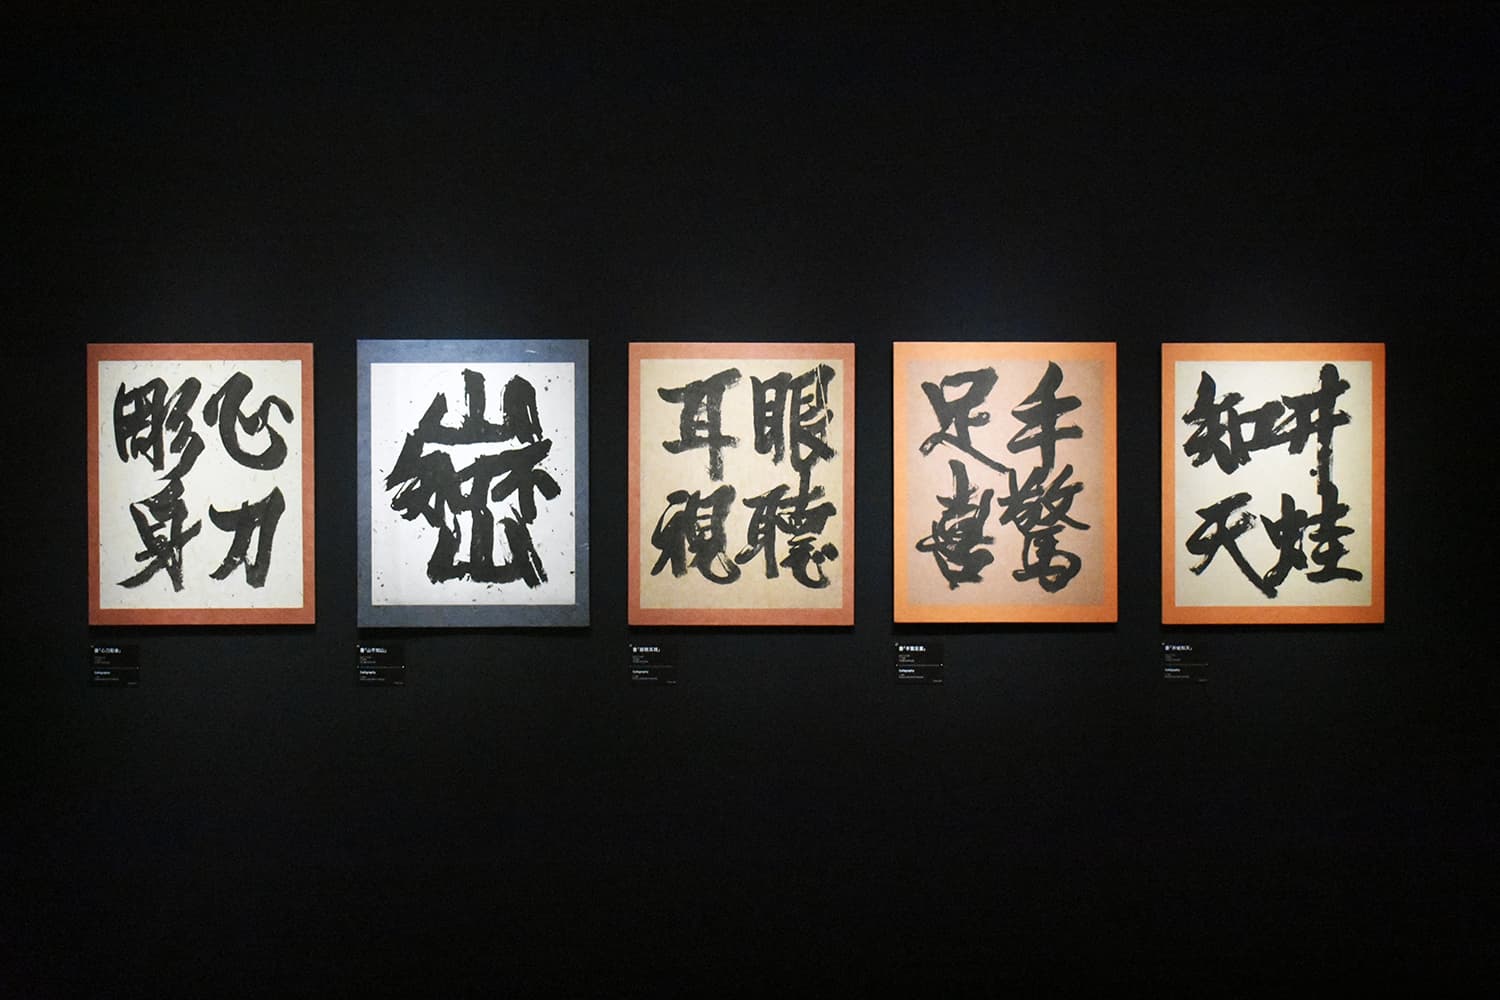 心刀
彫身
山
不知
山
眼聴
耳視
手驚
足喜
井蛙
知天
書「心刀彫身」
Calligraphy
書「山不知山」
Calligraphy
書「眼聴耳視」
Calligraphy
書「手驚足喜」
Calligraphy
書「井蛙知天」
Calligraphy